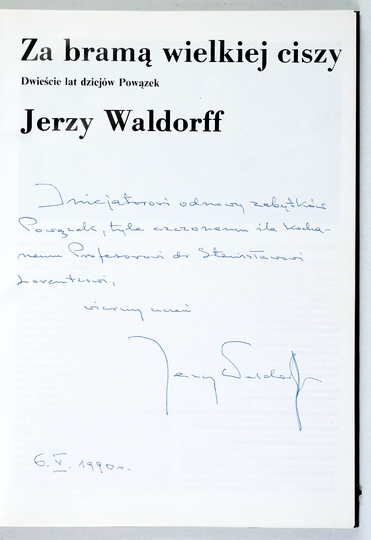 Za bramą wielkiej ciszy
Dwieście lat dziejów Powązek
Jerzy Waldorff
Inicjatorowi odnowy zabytków
Powązek, tyle czczonemu ile kocha-
nemu Profesorowi dr Stanisławowi
Lorentzowi,
wierny uczeń
Jerzy Waldorff
6. V. 1990 r.